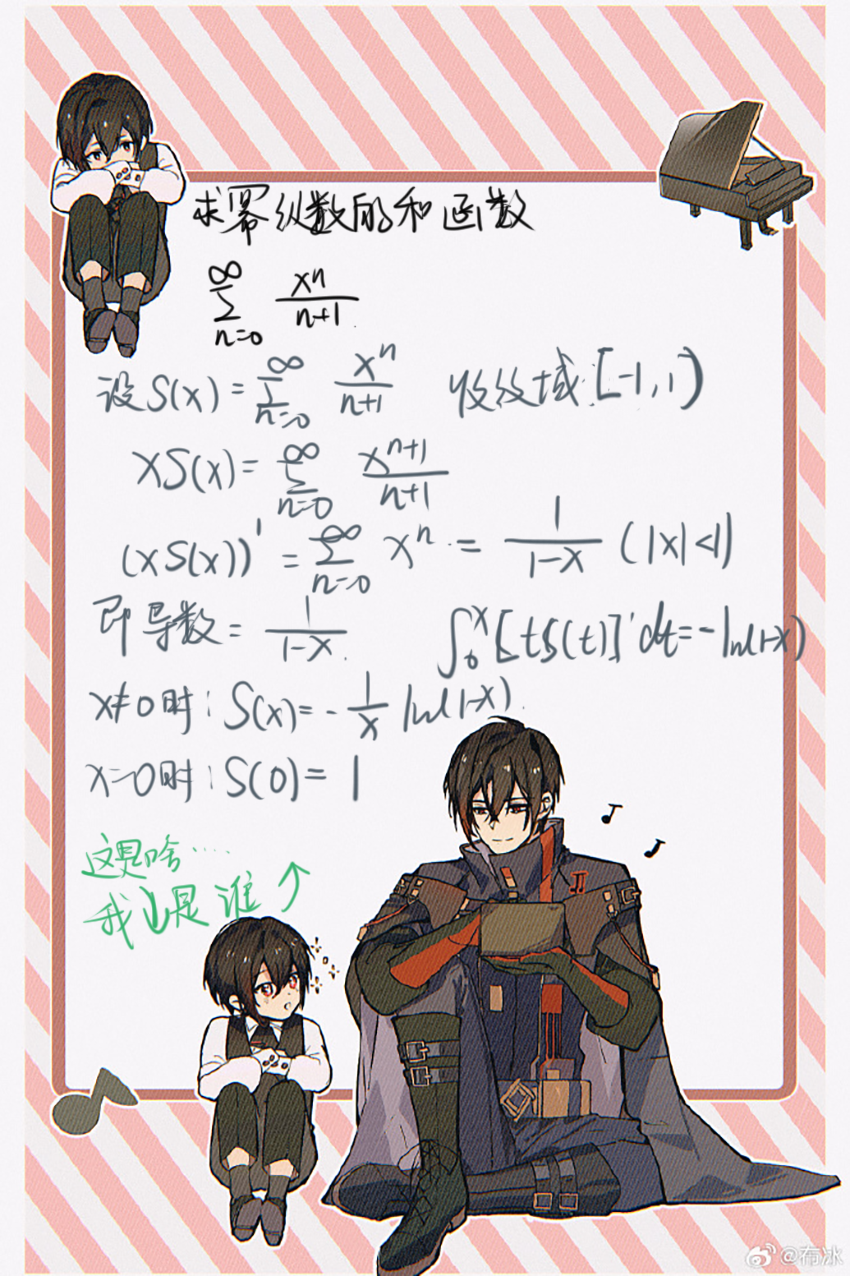 求幂级数的和函数
∞
∑ xⁿ/(n+1)
n=0
设 S(x) = ∑_{n=0}^{∞} xⁿ/(n+1) 收敛域:[-1,1)
xS(x) = ∑_{n=0}^{∞} xⁿ⁺¹/(n+1)
(xS(x))' = ∑_{n=0}^{∞} xⁿ = 1/(1-x) (|x|<1)
即导数 = 1/(1-x) ∫₀ˣ[tS(t)]'dt = -ln(1-x)
x≠0时: S(x) = -1/x ln(1-x)
x=0时: S(0) = 1
这是啥……
我↓是谁↑
@布冰